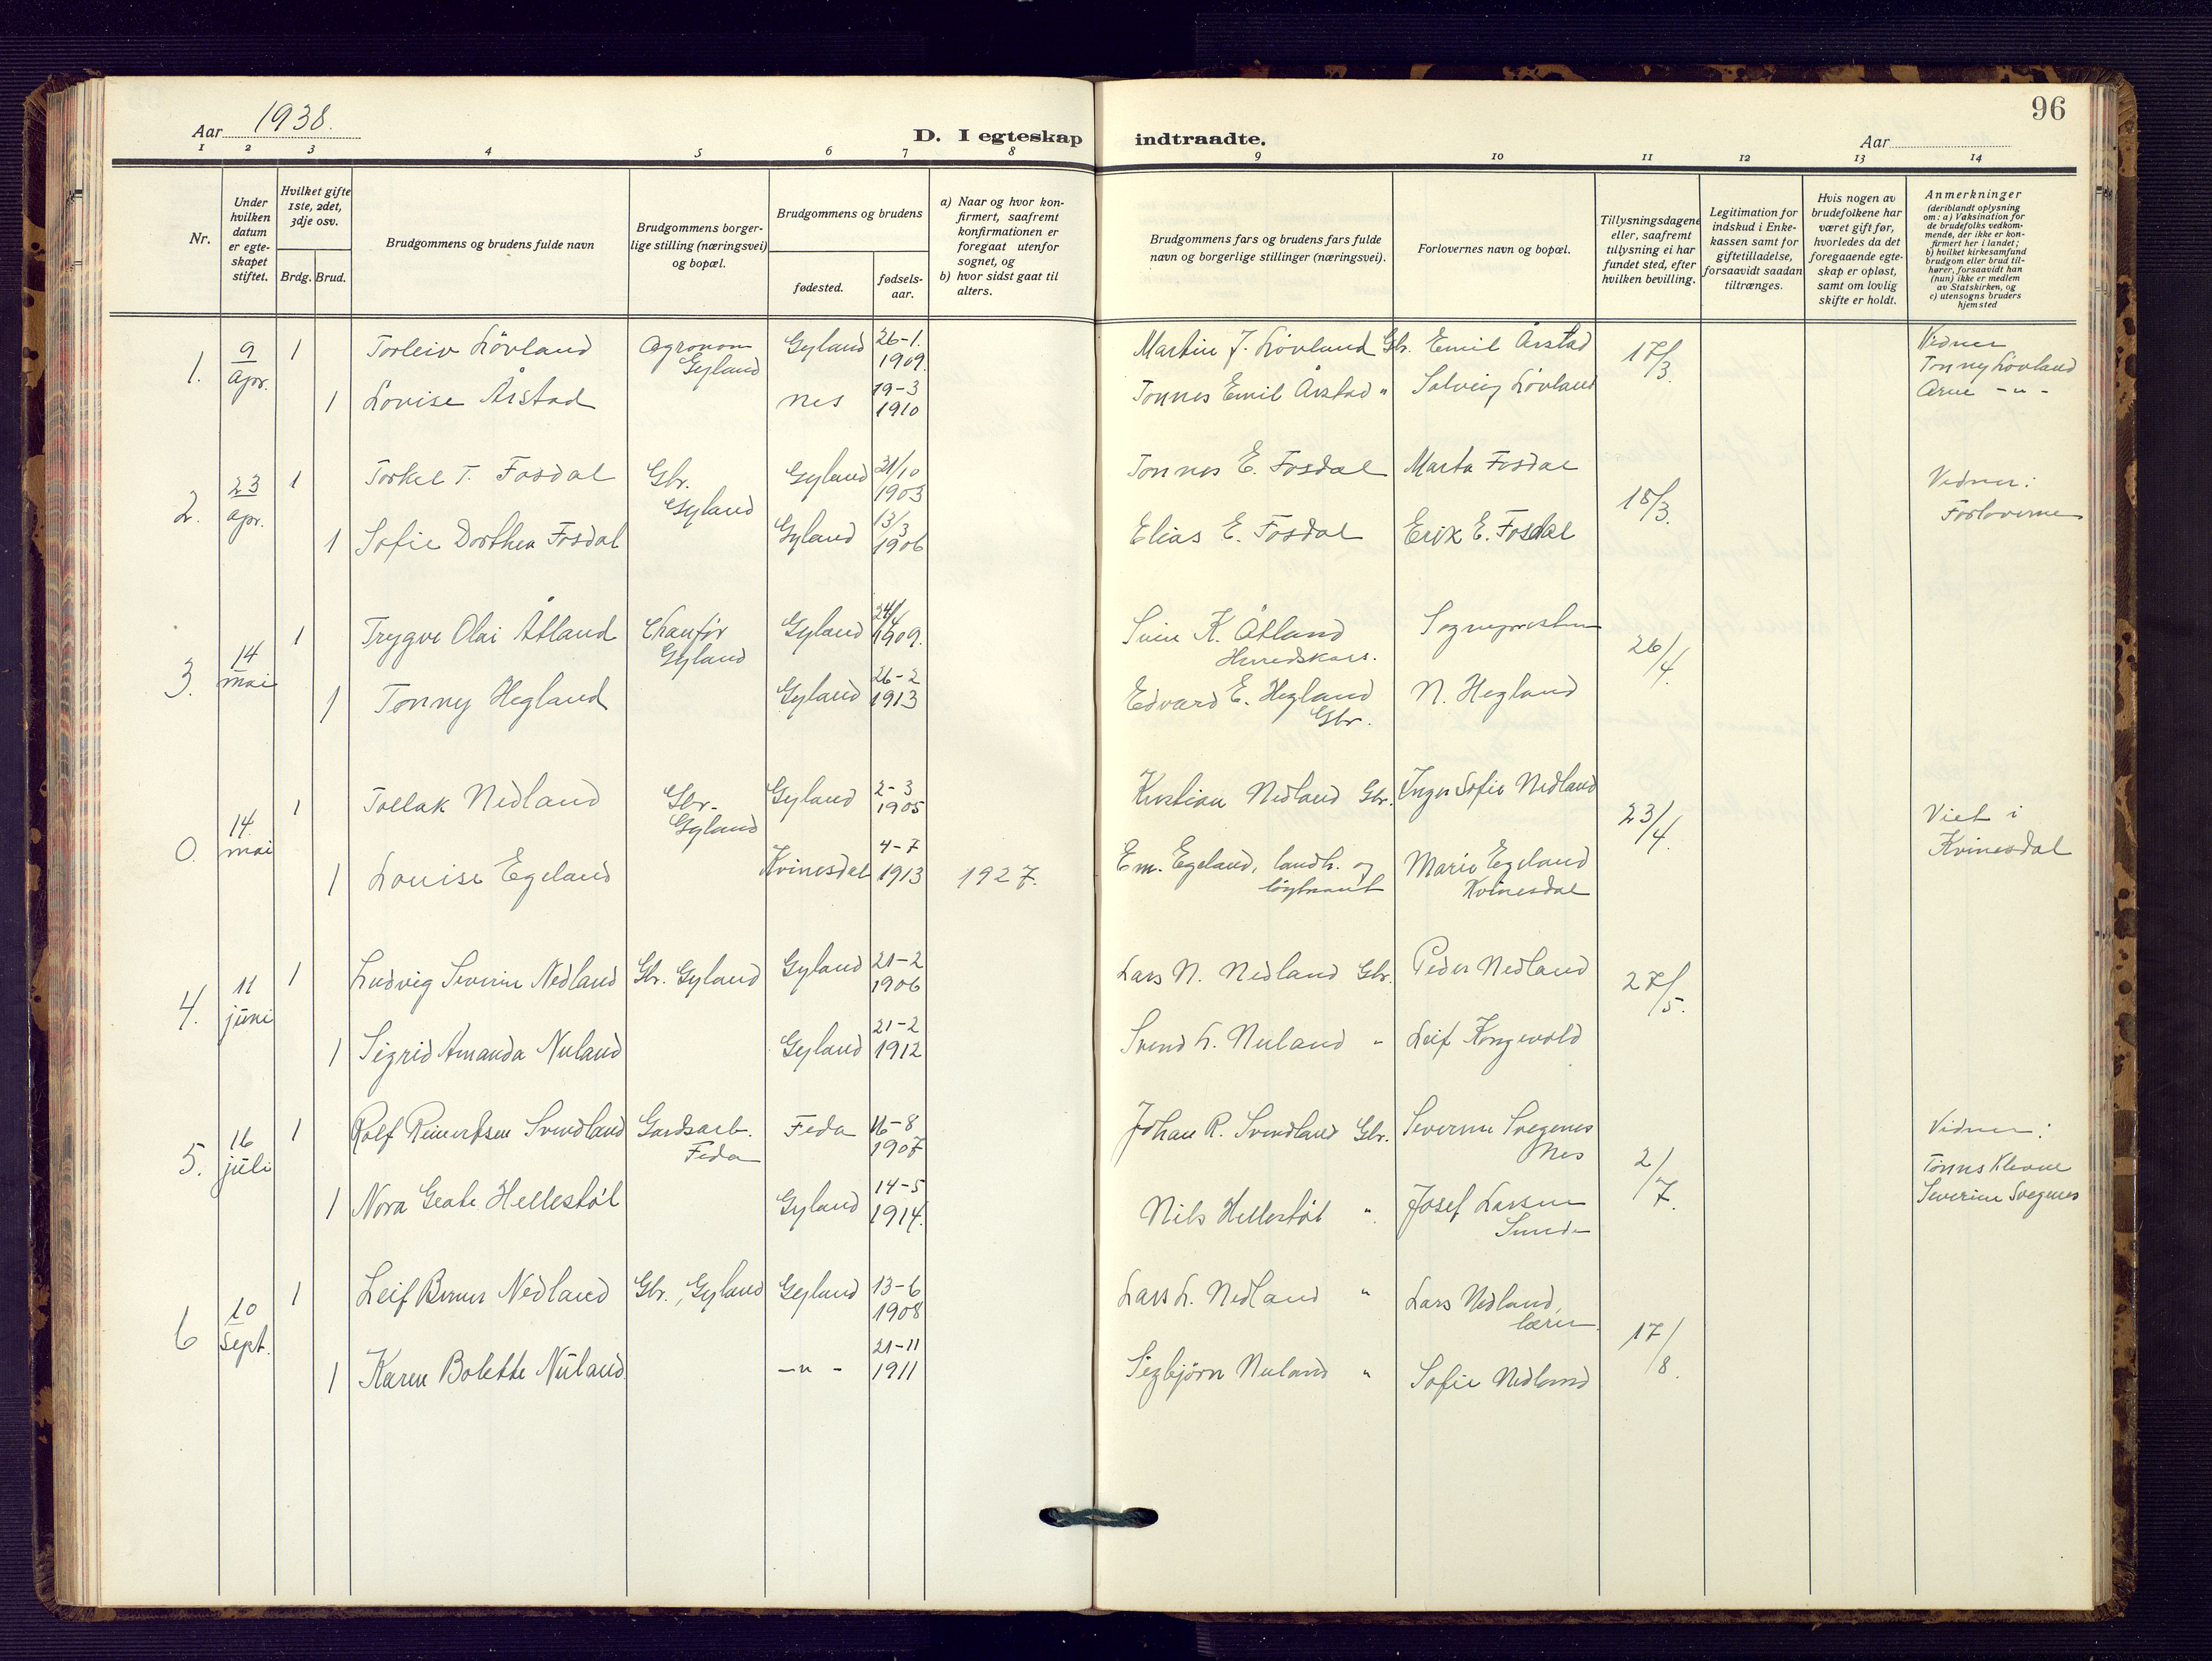 Aar 1938.
D. I egteskap indtraadte.
Aar
96
1 2 3 4 5 6 7 8 9 10 11 12 13 14
Nr.
Under hvilken datum er egteskapet stiftet.
Hvilket gifte 1ste, 2det, 3dje osv.
Brdg. Brud.
Brudgommens og brudens fulde navn
Brudgommens borgerlige stilling (næringsvei) og bopæl.
Brudgommens og brudens
fødested.
fødselsaar.
a) Naar og hvor konfirmert, saafremt konfirmationen er foregaat utenfor sognet, og
b) hvor sidst gaat til alters.
Brudgommens fars og brudens fars fulde navn og borgerlige stillinger (næringsvei).
Forlovernes navn og bopæl.
Tillysningsdagene eller, saafremt tillysning ei har fundet sted, efter hvilken bevilling.
Legitimation for indskud i Enkekassen samt for giftetilladelse, forsaavidt saadan tiltrænges.
Hvis nogen av brudefolkene har været gift før, hvorledes da det foregaaende egteskap er opløst, samt om lovlig skifte er holdt.
Anmerkninger
(deriblandt oplysning om: a) Vaksination for de brudefolks vedkommende, der ikke er konfirmert her i landet;
b) hvilket kirkesamfund brudgom eller brud tilhører, forsaavidt han (hun) ikke er medlem av Statskirken, og
c) utensogns bruders hjemsted
1. 9 apr. 1 Torleiv Lövland Agronom Gyland Gyland 26-1. 1909. Martin J. Lövland Gbr. Emil Årstad 17/3. Vidner
Tonny Lövland
Arne -"-
1 Lovise Årstad Nes 19-3 1910 Tonnes Emil Årstad " Solveig Lövland
2. 23 apr. 1 Torkel T. Fosdal Gbr. Gyland Gyland 31/10 1903 Tonnes E. Fosdal Marta Fosdal 18/3. Vidner:
Forloverne
1 Sofie Dorthea Fosdal Gyland 13/3 1906 Elias E. Fosdal Erik E. Fosdal
3. 14 mai 1 Trygve Olai Åtland Chauför Gyland Gyland 1909. Svein K. Åtland Herredskass. Sognepresten 26/4.
1 Tonny Hegland Gyland 26-2 1913 Edvard E. Hegland Gbr. N. Hegland
0. 14 mai 1 Tollak Nedland Gbr. Gyland Gyland 2-3 1905 Kristian Nedland Gbr. Inger Sofie Nedland 23/4. Viet i
Kvinesdal
1 Louise Egeland Kvinesdal 4-7 1913 1927. Em. Egeland, landh. og löytnant Marie Egeland Kvinesdal
4. 11 juni 1 Ludvig Severin Nedland Gbr. Gyland Gyland 21-2 1906 Lars N. Nedland Gbr. Peder Nedland 27/5.
1 Sigrid Amanda Nuland Gyland 21-2 1912 Svend L. Nuland " Leif Kongevold
5. 16 juli 1 Rolf Reinertsen Svindland Gardsarb. Feda Feda 16-8 1907 Johan R. Svindland Gbr. Severine Svegenes Nes 2/7. Vidner:
Tönnes Klevene
Severine Svegenes
1 Nora Geate Hellestöl Gyland 14-5 1914. Nils Hellestöl " Josef Larsen Sunde
6 10 sept. 1 Leif Berner Nedland Gbr., Gyland Gyland 13-6 1908 Lars L. Nedland " Lars Nedland, lærer 17/8.
1 Karen Bolette Nuland -"- 21-11 1911 Sigbjörn Nuland " Sofie Nedland